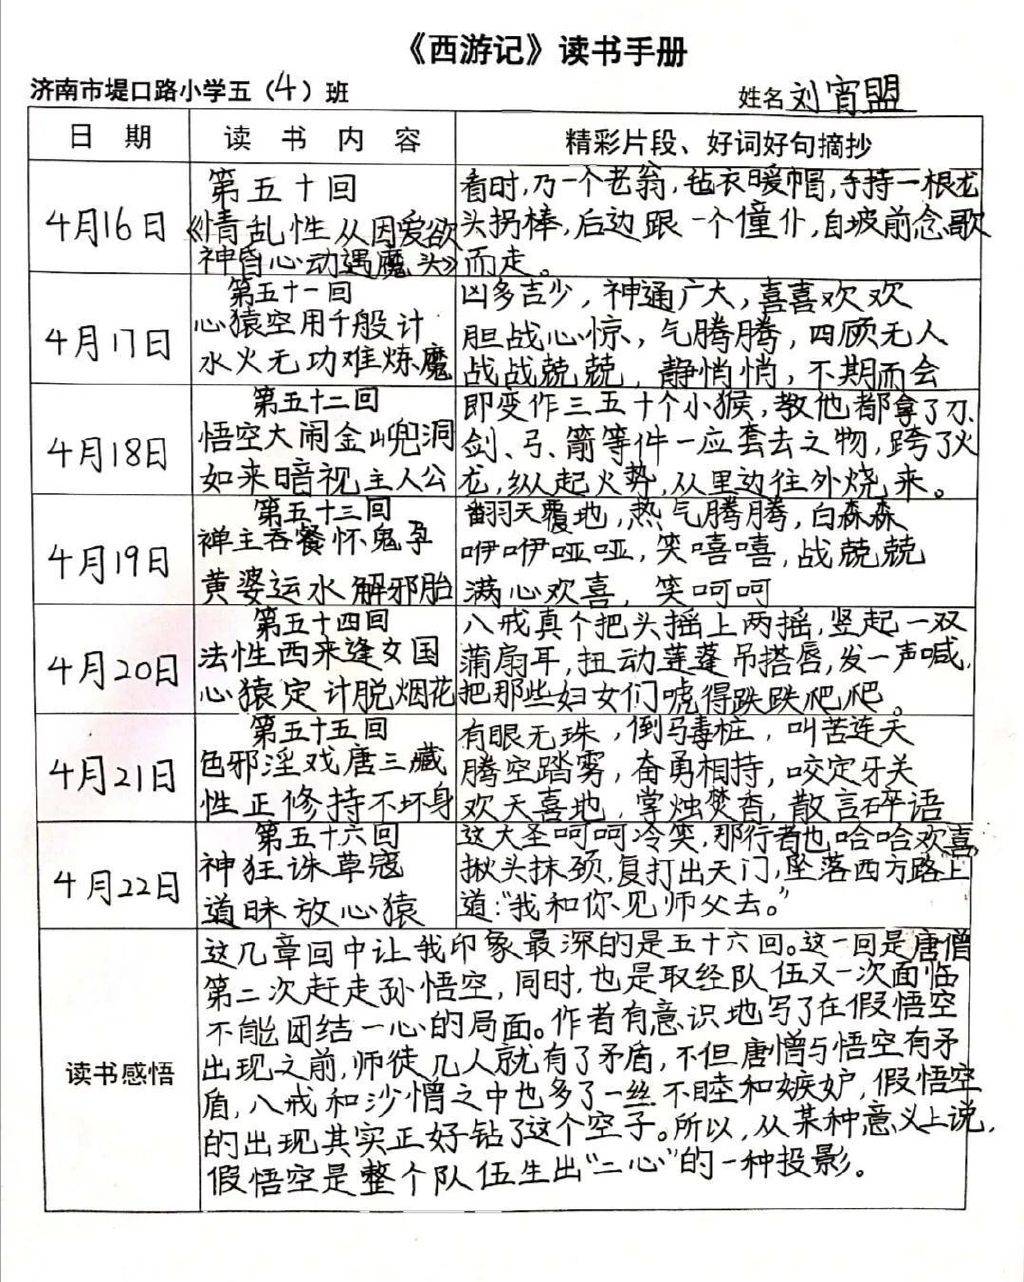 《西游记》读书手册
济南市堤口路小学五（4）班
姓名 刘宵盟
日 期 读 书 内 容 精彩片段、好词好句摘抄
4月16日
第五十回
《情乱性从因爱欲
神昏心动遇魔头》
看时,乃一个老翁,毡衣暖帽,手持一根龙
头拐棒,后边跟一个僮仆,自坡前念歌
而走。
4月17日
第五十一回
心猿空用千般计
水火无功难炼魔
凶多吉少,神通广大,喜喜欢欢
胆战心惊,气腾腾,四顾无人
战战兢兢,静悄悄,不期而会
4月18日
第五十二回
悟空大闹金山兜洞
如来暗视主人公
即变作三五十个小猴,教他都拿了刀、
剑、弓、箭等件一应套去之物,跨了火
龙,纵起火势,从里边往外烧来。
4月19日
第五十三回
禅主吞餐怀鬼孕
黄婆运水解邪胎
翻天覆地,热气腾腾,白森森
咿咿哑哑,笑嘻嘻,战兢兢
满心欢喜,笑呵呵
4月20日
第五十四回
法性西来逢女国
心猿定计脱烟花
八戒真个把头摇上两摇,竖起一双
蒲扇耳,扭动莲蓬吊搭唇,发一声喊,
把那些妇女们唬得跌跌爬爬。
4月21日
第五十五回
色邪淫戏唐三藏
性正修持不坏身
有眼无珠,倒马毒桩,叫苦连天
腾空踏雾,奋勇相持,咬定牙关
欢天喜地,掌烛焚香,散言碎语
4月22日
第五十六回
神狂诛草寇
道昧放心猿
这大圣呵呵冷笑,那行者也哈哈欢喜,
揪头抹颈,复打出天门,坠落西方路上
道:“我和你见师父去。”
读书感悟
这几章回中让我印象最深的是五十六回。这一回是唐僧
第二次赶走孙悟空,同时,也是取经队伍又一次面临
不能团结一心的局面。作者有意识地写了在假悟空
出现之前,师徒几人就有了矛盾,不但唐僧与悟空有矛
盾,八戒和沙僧之中也多了一丝不睦和嫉妒,假悟空
的出现其实正好钻了这个空子。所以,从某种意义上说,
假悟空是整个队伍生出“二心”的一种投影。